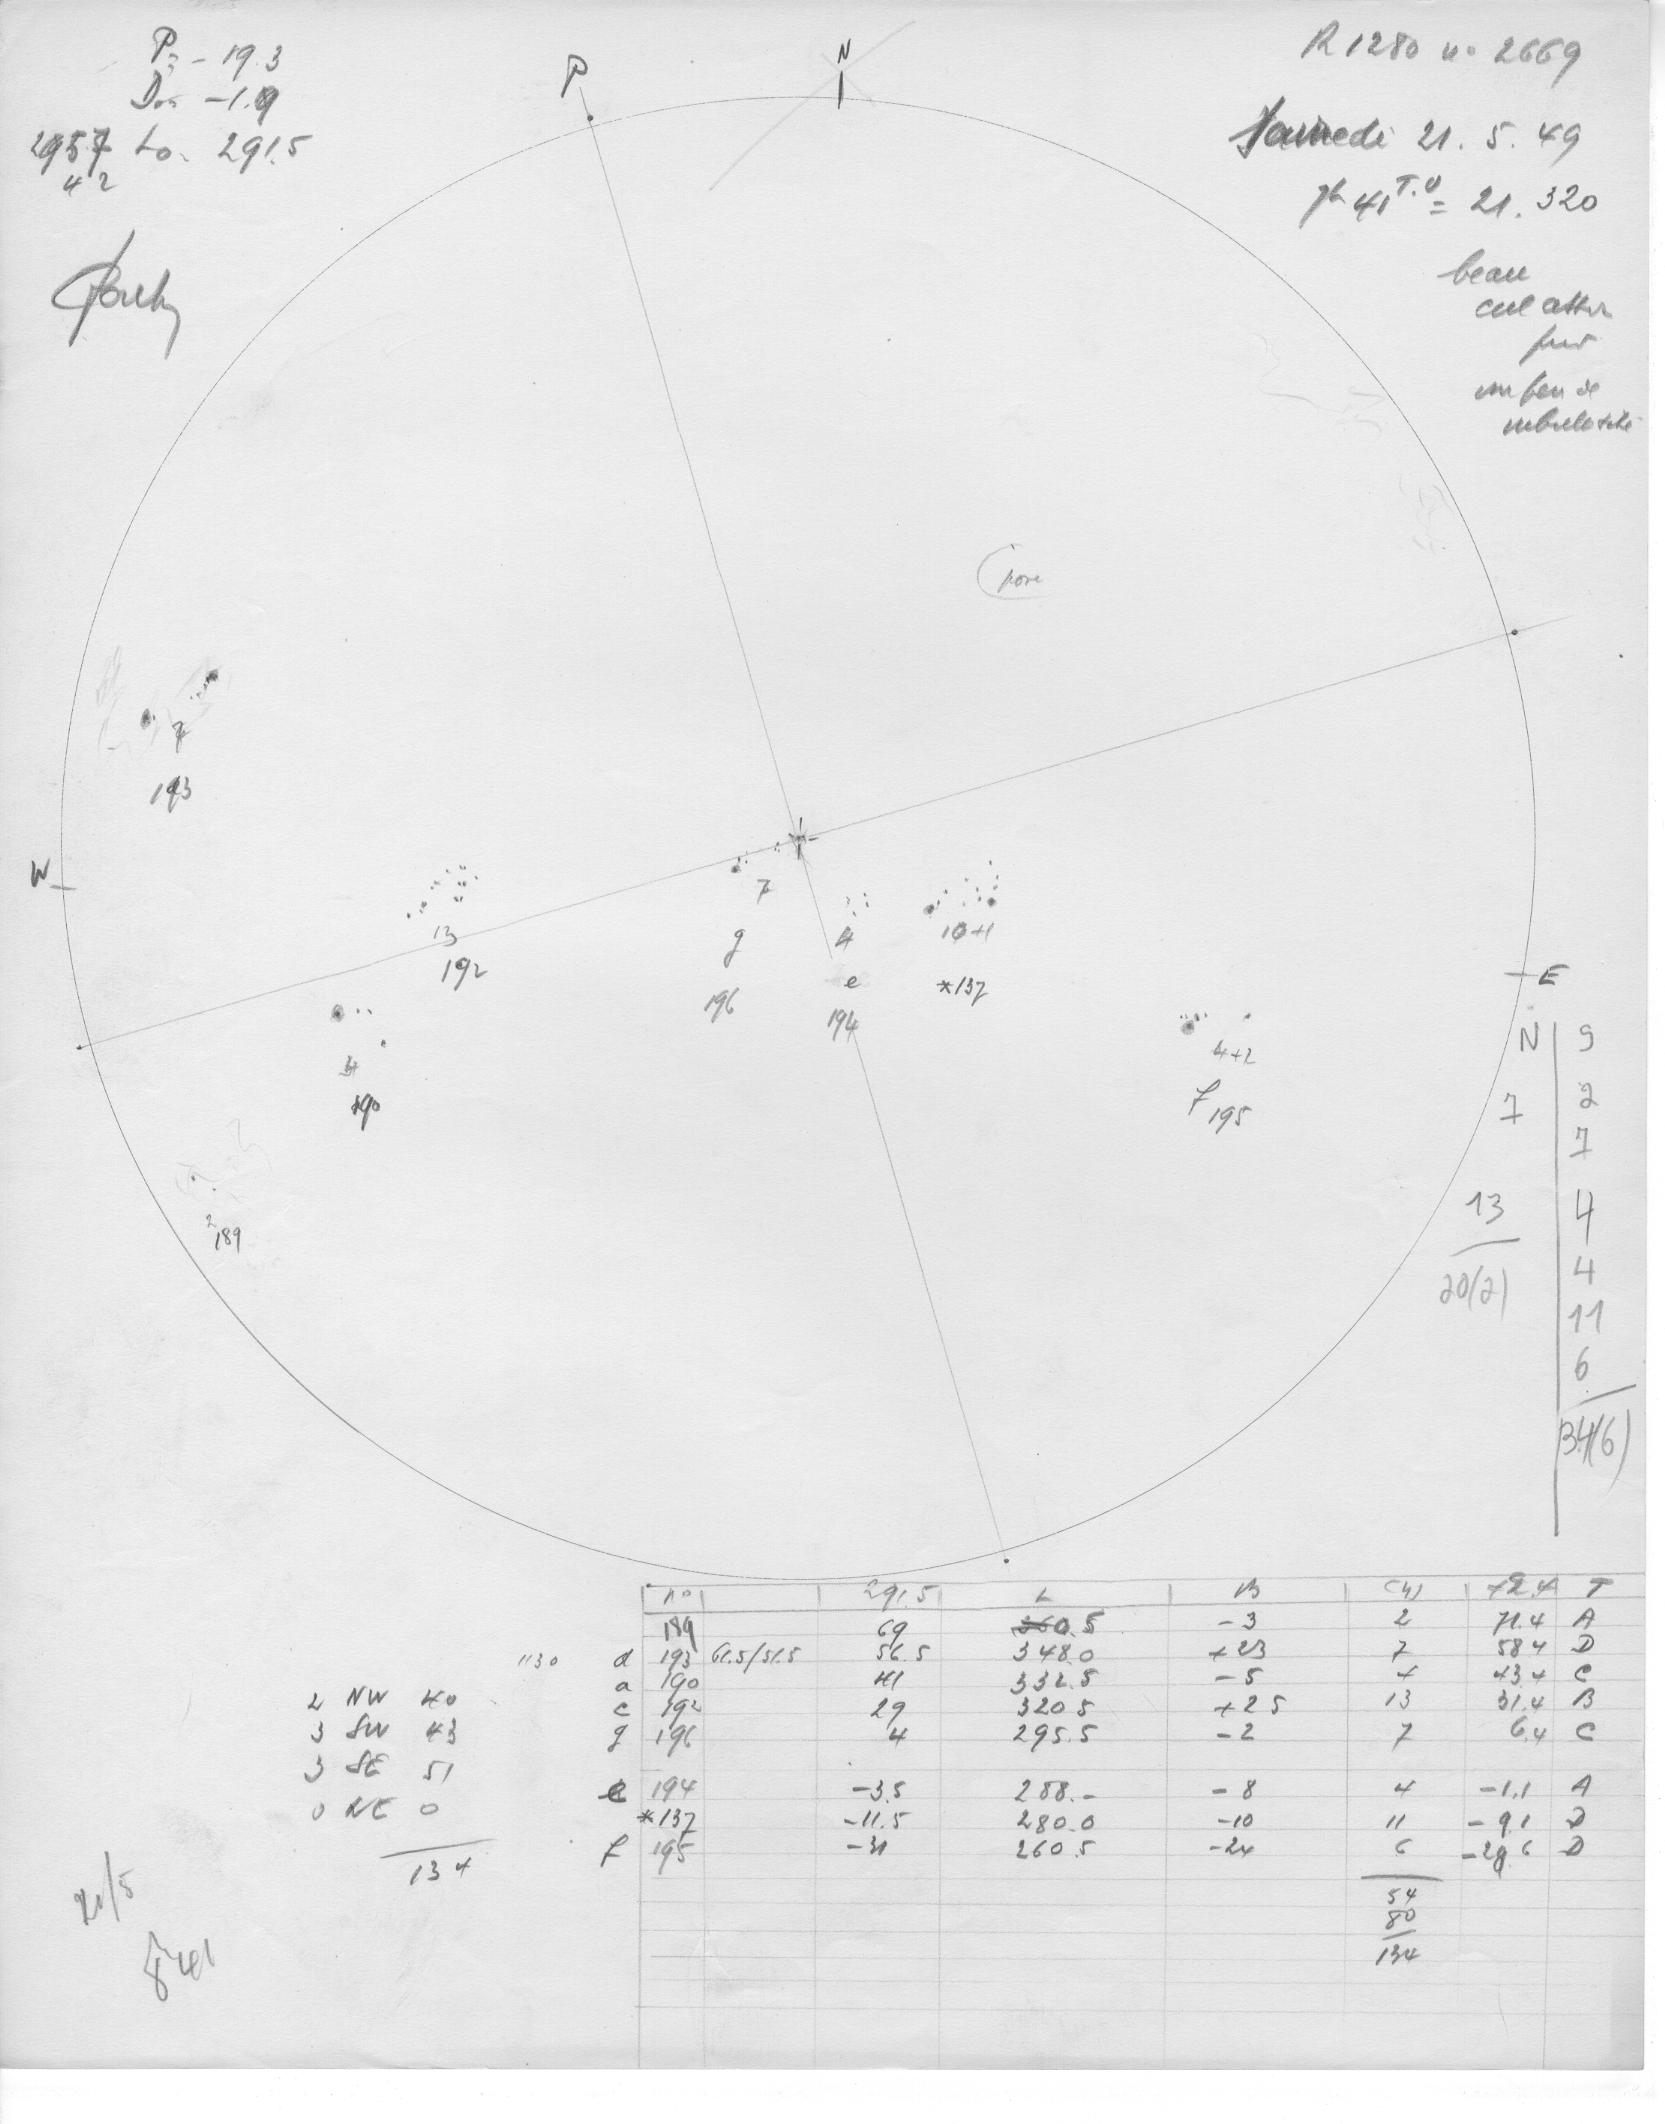 P = -19.3
D = -1.9
Lo = 291.5
42
P
N
R 1280 no 2669
Samedi 21. 5. 49
7h 41 T.U = 21. 320
beau
un peu de
nébulosité
pore
7
193
W
13
192
7
g
196
4
e
194
10+1
*137
E
4
190
4+2
f 195
2
189
N | S
7 | 2
7
13 | 4
20(2) | 4
11
6
34(6)
no 291.5 L B T
189 69 -3 2 71.4 A
1130 d 193 61.5/51.5 56.5 348.0 +23 7 58.4 D
a 190 41 332.5 -5 4 43.4 C
c 192 29 320.5 +2.5 13 31.4 B
g 196 4 295.5 -2 7 6.4 C
e 194 -3.5 288.- -8 4 -1.1 A
*137 -11.5 280.0 -10 11 -9.1 D
f 195 -31 260.5 -24 6 -28.6 D
54
80
134
2 NW 40
3 SW 43
3 SE 51
0 NE 0
134
21/5
8h41